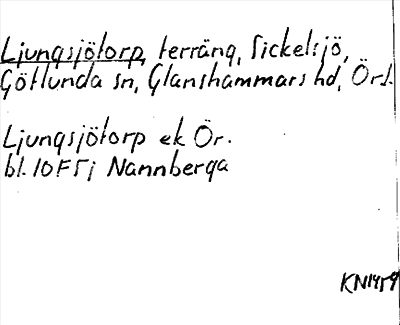 Ljungsjötorp, terräng, Sickelsjö,
Götlunda sn, Glanshammars hd, Örl.
Ljungsjötorp ek Ör.
bl. 10F5j Nannberga
KN1959